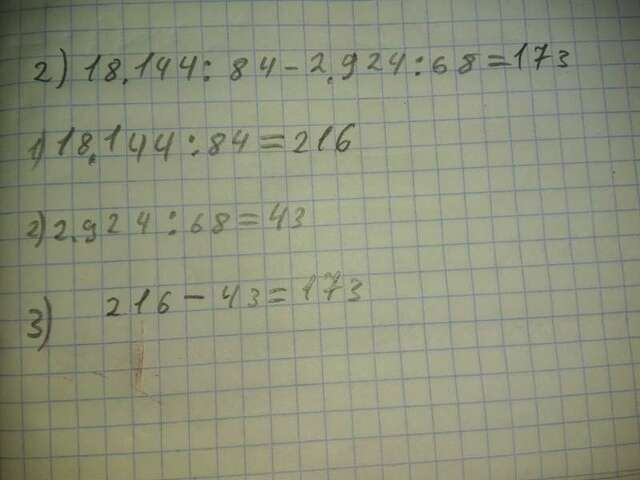 2) 18.144 : 84 - 2.924 : 68 = 173
1) 18.144 : 84 = 216
2) 2.924 : 68 = 43
3) 216 - 43 = 173